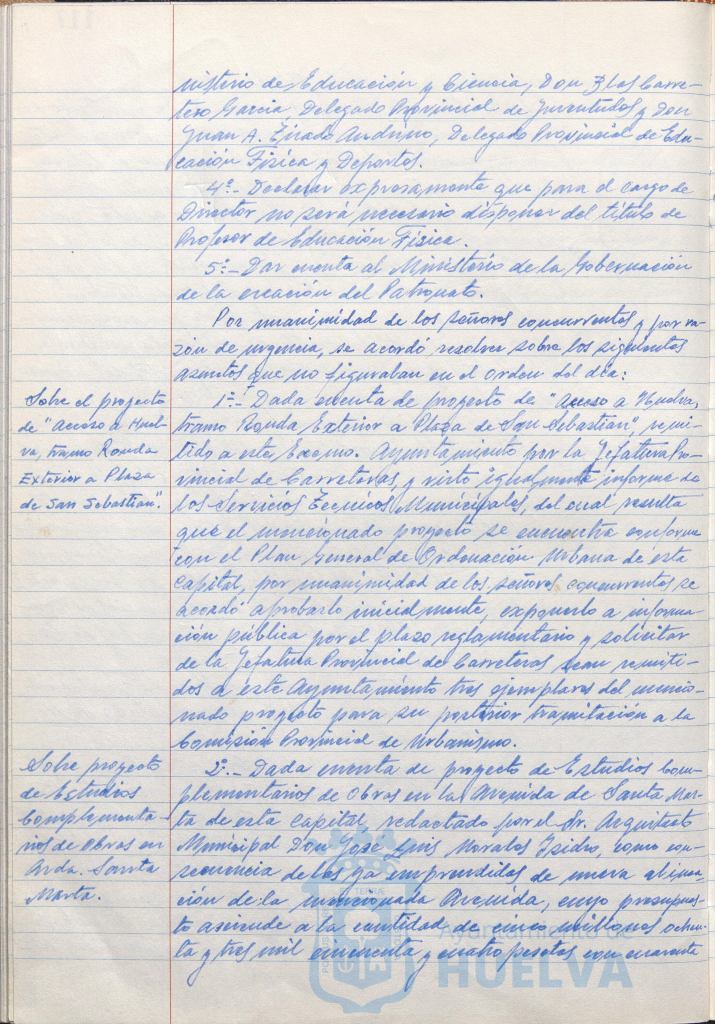 nisterio de Educación y Ciencia, Don Blas Carre-
tero García, Delegado Provincial de Juventudes y Don
Juan A. Andrino, Delegado Provincial de Edu-
cación Física y Deportes.
4º.- Declarar expresamente que para el cargo de
Director no será necesario disponer del título de
Profesor de Educación Física.
5º.- Dar cuenta al Ministerio de la Gobernación
de la creación del Patronato.
Por unanimidad de los señores concurrentes y por ra-
zón de urgencia, se acordó resolver sobre los siguientes
asuntos que no figuraban en el orden del día:
Sobre el proyecto
de "Acceso a Huel-
va, tramo Ronda
Exterior a Plaza
de San Sebastian".
1º.- Dada cuenta de proyecto de "Acceso a Huelva,
tramo Ronda Exterior a Plaza de San Sebastian", remi-
tido a este Excmo. Ayuntamiento por la Jefatura Pro-
vincial de Carreteras, y visto igualmente informe de
los Servicios Tecnicos Municipales, del cual resulta
que el mencionado proyecto se encuentra conforme
con el Plan General de Ordenación Urbana de esta
Capital, por unanimidad de los señores concurrentes se
acordó aprobarlo inicialmente, exponerlo a informa-
ción pública por el plazo reglamentario y solicitar
de la Jefatura Provincial de Carreteras sean remiti-
dos a este Ayuntamiento tres ejemplares del mencio-
nado proyecto para su posterior tramitación a la
Comision Provincial de Urbanismo.
Sobre proyecto
de Estudios
Complementa-
rios de Obras en
Avda. Santa
Marta.
2º.- Dada cuenta de proyecto de Estudios Com-
plementarios de Obras en la Avenida de Santa Mar-
ta de esta Capital, redactado por el Sr. Arquitecto
Municipal Don Jose Luis Morales Isidro, como con-
secuencia de las ya emprendidas de nueva alinea-
ción de la mencionada Avenida, cuyo presupues-
to asciende a la cantidad de cinco millones ochen-
ta y tres mil cincuenta y cuatro pesetas con cuarenta
Ayuntamiento de
HUELVA